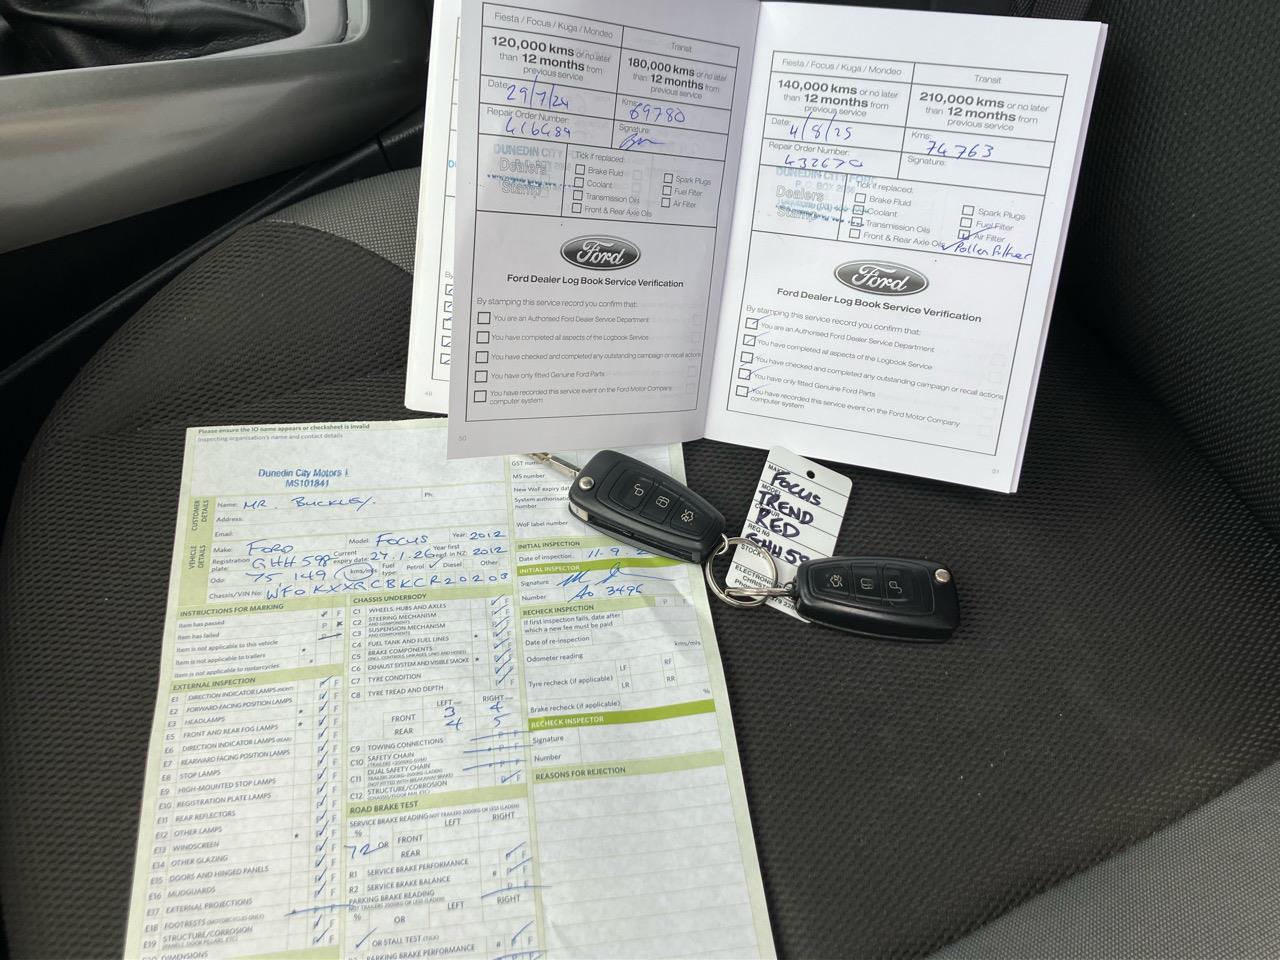 Fiesta / Focus / Kuga / Mondeo
Transit
120,000 kms or no later
than 12 months from
previous service
180,000 kms or no later
than 12 months from
previous service
Date: 29/7/24
Kms: 69780
Repair Order Number:
416489
Signature:
DUNEDIN CITY
Dealers
Stamp
Tick if replaced:
Brake Fluid
Coolant
Transmission Oils
Front & Rear Axle Oils
Spark Plugs
Fuel Filter
Air Filter
Ford
Ford Dealer Log Book Service Verification
By stamping this service record you confirm that:
You are an Authorised Ford Dealer Service Department
You have completed all aspects of the Logbook Service
You have checked and completed any outstanding campaign or recall actions
You have only fitted Genuine Ford Parts
You have recorded this service event on the Ford Motor Company
computer system
50
Fiesta / Focus / Kuga / Mondeo
Transit
140,000 kms or no later
than 12 months from
previous service
210,000 kms or no later
than 12 months from
previous service
Date: 4/8/25
Kms: 74763
Repair Order Number:
Signature:
DUNEDIN CITY
P.O. BOX
Dealers
Stamp
Tick if replaced:
Brake Fluid
Coolant
Transmission Oils
Front & Rear Axle Oils
Spark Plugs
Fuel Filter
Air Filter
Pollen filter
Ford
Ford Dealer Log Book Service Verification
By stamping this service record you confirm that:
You are an Authorised Ford Dealer Service Department
You have completed all aspects of the Logbook Service
You have checked and completed any outstanding campaign or recall actions
You have only fitted Genuine Ford Parts
You have recorded this service event on the Ford Motor Company
computer system
51
Please ensure the IO name appears or checksheet is invalid
Inspecting organisation's name and contact details
Dunedin City Motors
MS101841
GST
MS number
New WoF expiry date
System authorisation
number
WoF label number
CUSTOMER DETAILS
Name: MR. BUCKLEY.
Ph:
Address:
Email:
VEHICLE DETAILS
Make: FORD
Model: FOCUS
Year: 2012
Registration plate: GHH598
Current expiry date: 27.1.26
Year first regd. in NZ: 2012
Odo: 75 149 kms/mls
Fuel type: Petrol Diesel Other
Chassis/VIN No: WF0KXXGCBKCR20203
INITIAL INSPECTION
Date of inspection: 11.9.2
INITIAL INSPECTOR
Signature
Number
3496
INSTRUCTIONS FOR MARKING
Item has passed
Item has failed
Item is not applicable to this vehicle
Item is not applicable to trailers
Item is not applicable to motorcycles
EXTERNAL INSPECTION
E1 DIRECTION INDICATOR LAMPS (FRONT)
E2 FORWARD-FACING POSITION LAMPS
E3 HEADLAMPS
E5 FRONT AND REAR FOG LAMPS
E6 DIRECTION INDICATOR LAMPS (REAR)
E7 REARWARD FACING POSITION LAMPS
E8 STOP LAMPS
E9 HIGH-MOUNTED STOP LAMPS
E10 REGISTRATION PLATE LAMPS
E11 REAR REFLECTORS
E12 OTHER LAMPS
E13 WINDSCREEN
E14 OTHER GLAZING
E15 DOORS AND HINGED PANELS
E16 MUDGUARDS
E17 EXTERNAL PROJECTIONS
E18 FOOTRESTS (MOTORCYCLES ONLY)
E19 STRUCTURE/CORROSION
E20 DIMENSIONS
CHASSIS UNDERBODY
C1 WHEELS, HUBS AND AXLES
C2 STEERING MECHANISM
AND COMPONENTS
C3 SUSPENSION MECHANISM
AND COMPONENTS
C4 FUEL TANK AND FUEL LINES
C5 BRAKE COMPONENTS
C6 EXHAUST SYSTEM AND VISIBLE SMOKE
C7 TYRE CONDITION
C8 TYRE TREAD AND DEPTH
LEFT RIGHT
FRONT 3 4
REAR 4 5
C9 TOWING CONNECTIONS
C10 SAFETY CHAIN
C11 DUAL SAFETY CHAIN
C12 STRUCTURE/CORROSION
ROAD BRAKE TEST
SERVICE BRAKE READING
LEFT RIGHT
%
72 OR FRONT
REAR
R1 SERVICE BRAKE PERFORMANCE
R2 SERVICE BRAKE BALANCE
PARKING BRAKE READING
LEFT RIGHT
%
OR
OR STALL TEST (TICK)
PARKING BRAKE PERFORMANCE
RECHECK INSPECTION
If first inspection fails, date after
which a new fee must be paid
Date of re-inspection
Odometer reading
kms/mls
Tyre recheck (if applicable)
LF RF
LR RR
Brake recheck (if applicable)
%
RECHECK INSPECTOR
Signature
Number
REASONS FOR REJECTION
MAKE
FOCUS
MODEL
TREND
RED
REG No
GHH59
STOCK
ELECTRONIC
CHRIST
Phone